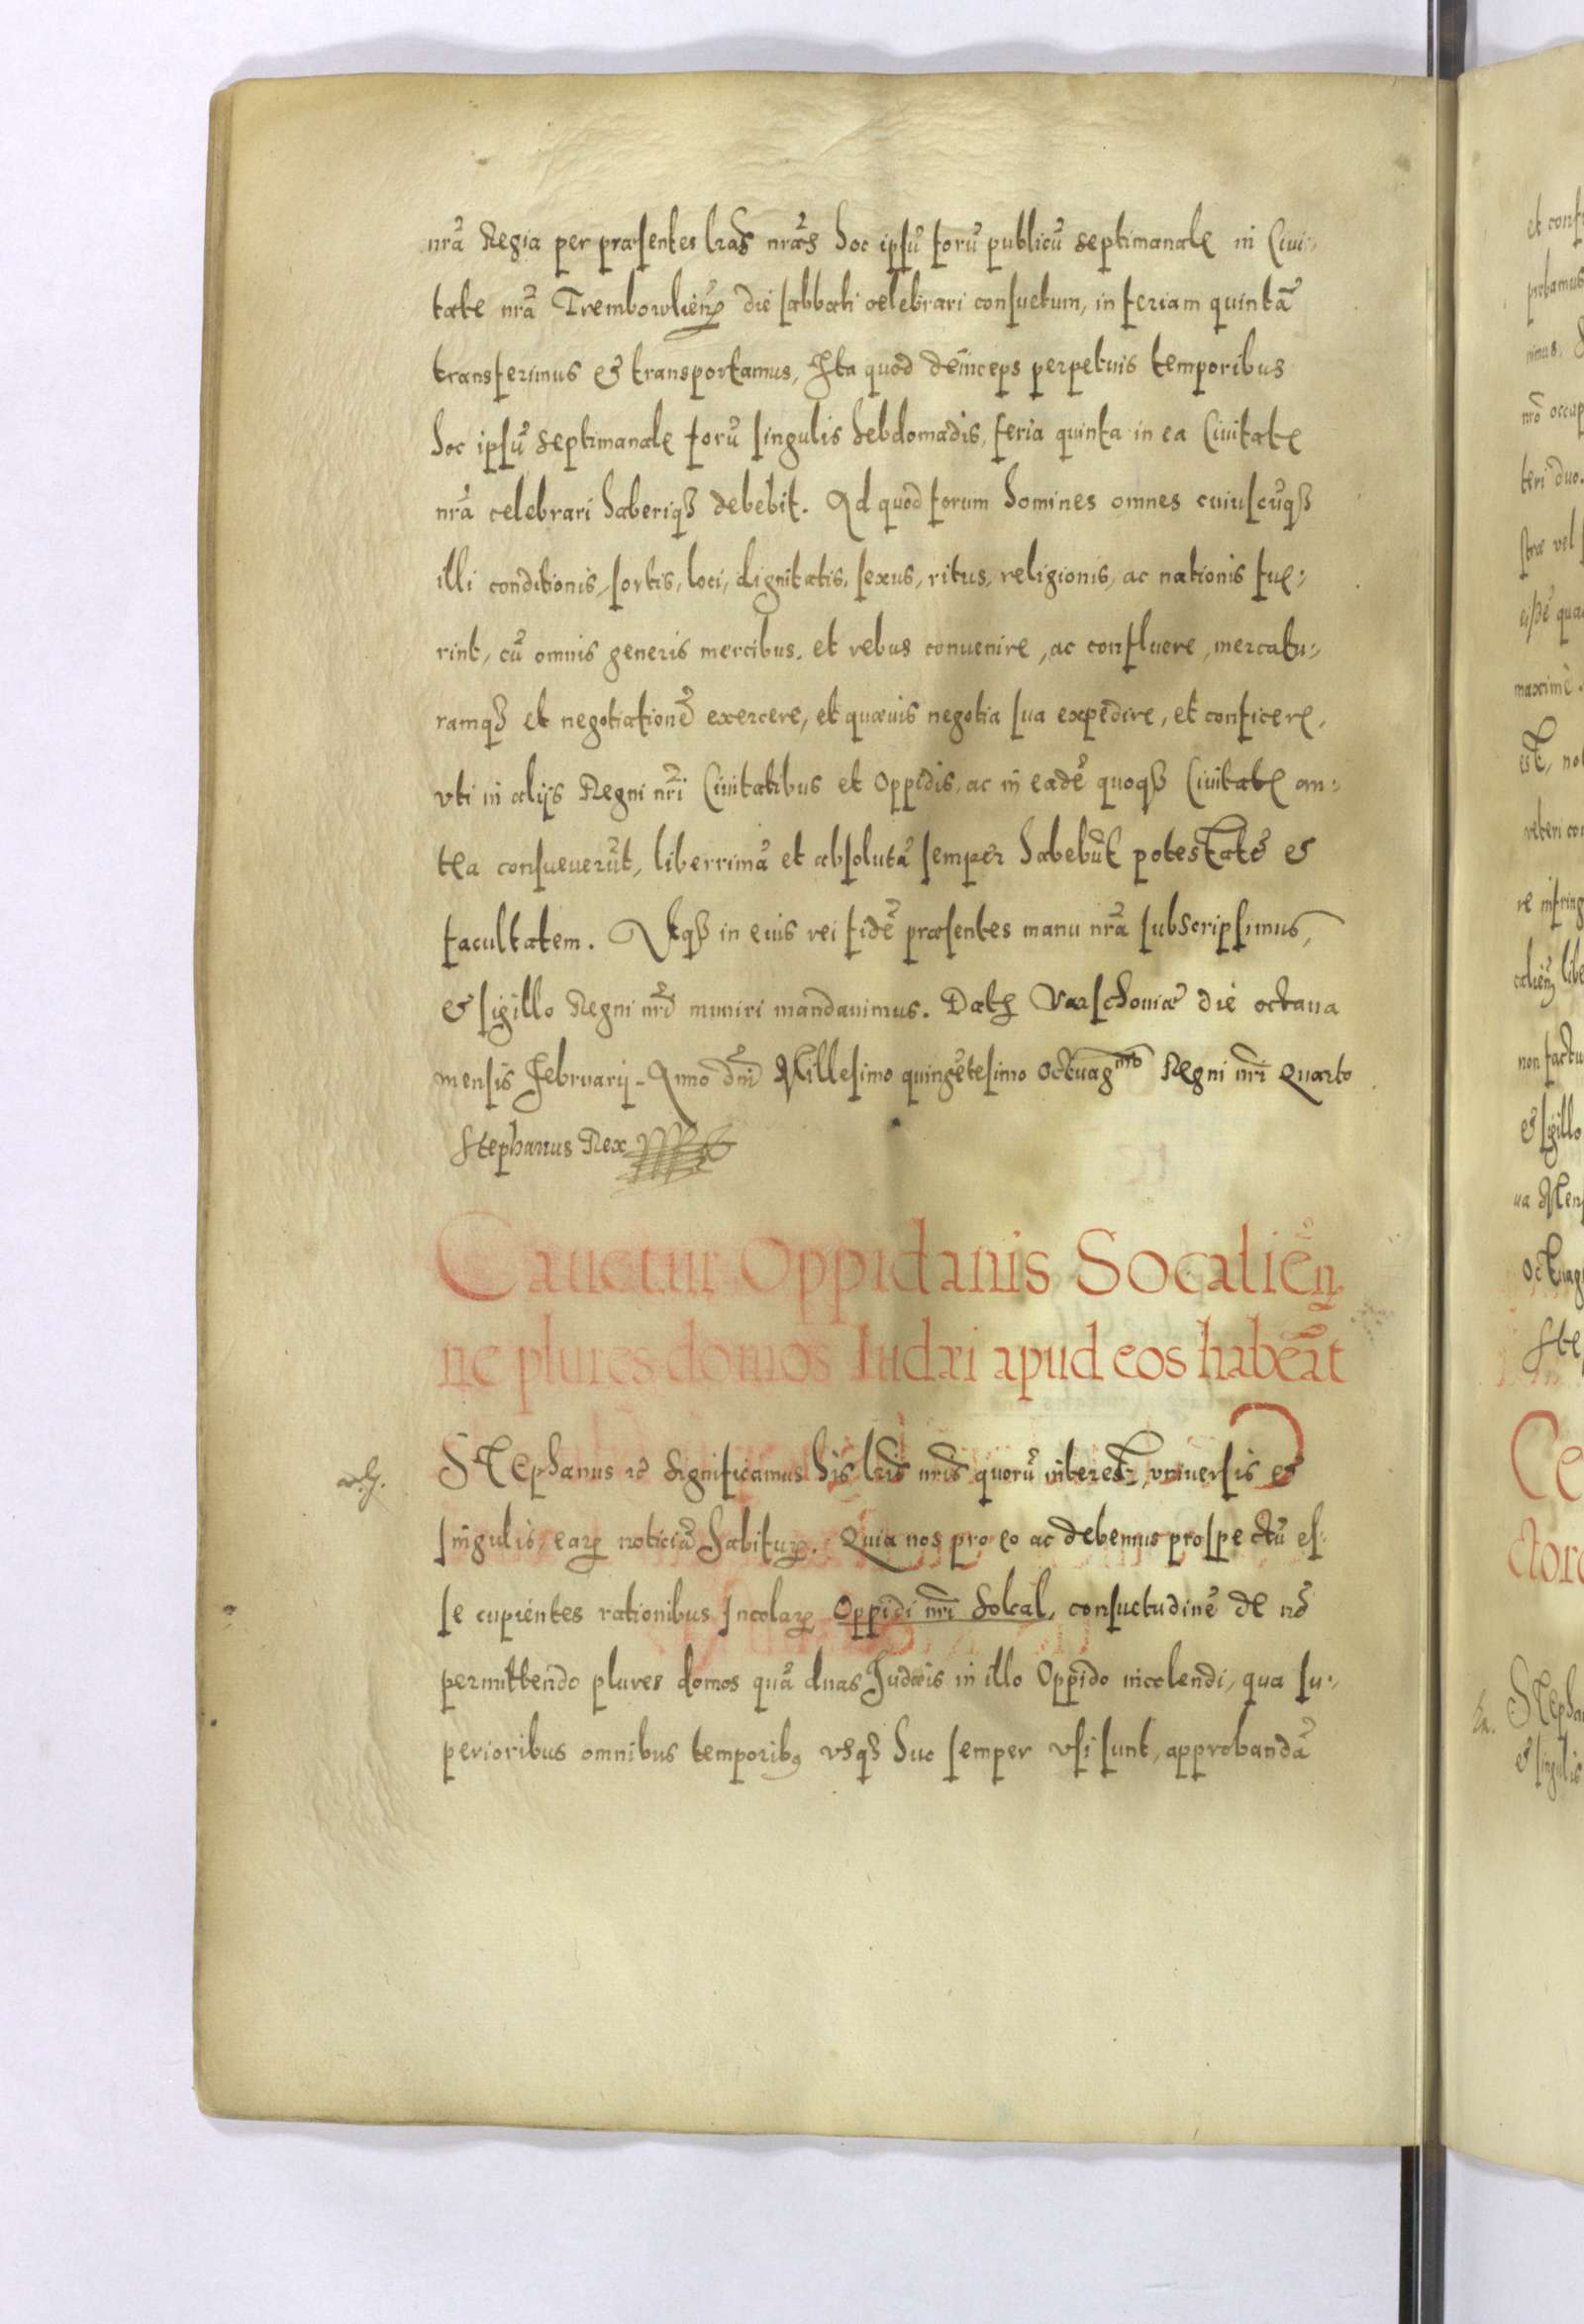 nrã Regia per præsentes lras nras hoc ipsũ forũ publicũ septimanale in Ciui⸗
tate nrã Trembowlieñ die sabbati celebrari consuetum, in feriam quintã
transferimus & transportamus, Ita quod deinceps perpetuis temporibus
hoc ipsũ septimanale forũ singulis hebdomadis, feria quinta in ea Ciuitate
nrã celebrari haberiqꝫ debebit. Ad quod forum homines omnes cuiuscũqꝫ
illi conditionis, sortis, loci, dignitatis, sexus, ritus, religionis, ac nationis fue⸗
rint, cũ omnis generis mercibus, et rebus conuenire, ac confluere, mercatu⸗
ramqꝫ et negotiationẽ exercere, et quæuis negotia sua expedire, et conficere,
vti in alijs Regni nri Ciuitatibus et Oppidis, ac in eadẽ quoqꝫ Ciuitate an⸗
tea consueuerũt, liberrimã et absolutã semper habebũt potestatẽ &
facultatem. Inqꝫ in eius rei fidẽ præsentes manu nrã subscripsimus,
& sigillo Regni nri muniri mandauimus. Dat Varschouiæ die octaua
mensis Februarij Anno dni Millesimo quingẽtesimo Octuagmo Regni nri Quarto
Stephanus Rex
Cauetur Oppidanis Socalieñ
ne plures domos Iudæi apud eos habeãt
Stephanus rc Significamus his lris nris quorũ interest, vniuersis &
singulis, earꝝ noticiã habiturꝝ. Quia nos pro eo ac debemus prospectũ es⸗
se cupientes rationibus Incolarꝝ Oppidi nri Sokal, consuetudinẽ de nõ
permittendo plures domos quã duas Iudæis in illo Oppido incolendi, qua su⸗
perioribus omnibus temporibꝰ vsqꝫ huc semper vsi sunt, approbandã